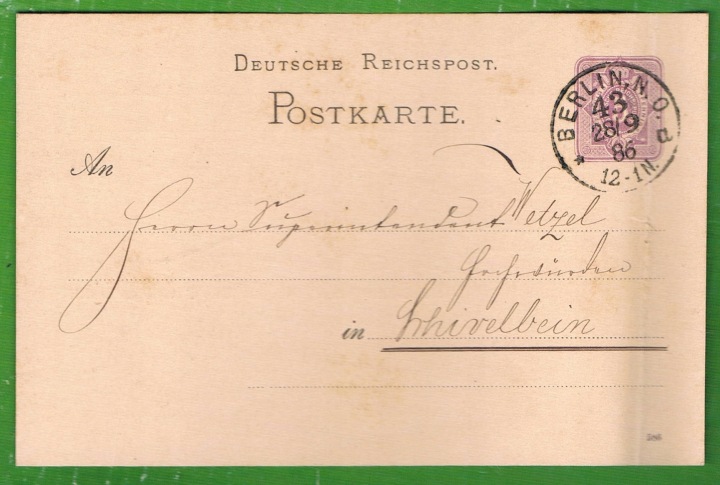 DEUTSCHE REICHSPOST.
POSTKARTE.
BERLIN, N.O.
43
28/9
86
* 12-1N. a
An
Herrn Superintendent Wetzel
Hochwürden
in Schivelbein
586